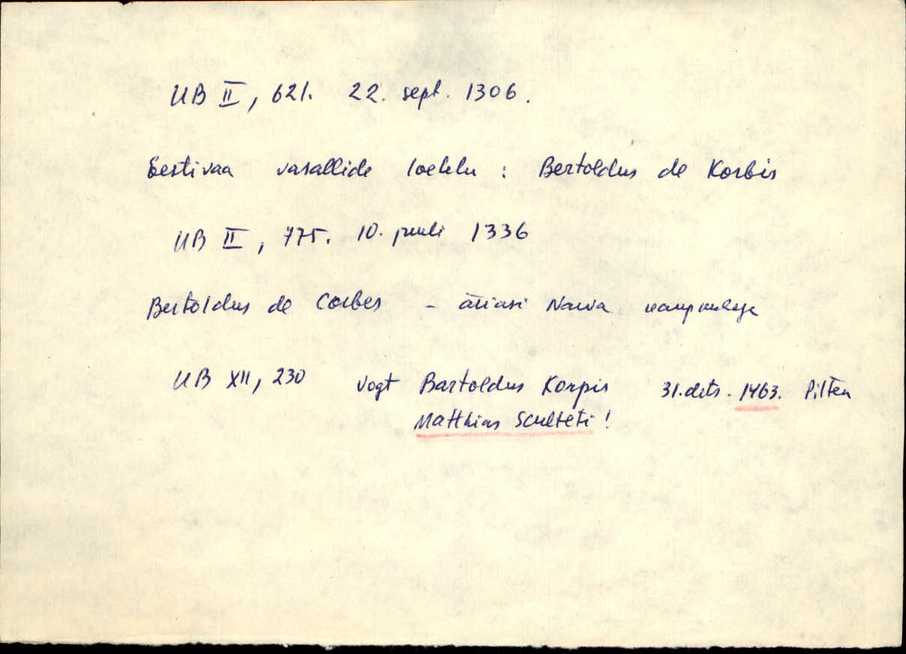 UB II, 621. 22. sept. 1306.
Eestimaa vasallide loetelu : Bertoldus de Korbis
UB II, 775. 10. juuli 1336
Bertoldus de Corbes - äiiasi Narva
UB XII, 230 vogt Bartoldus Korpis 31. dets. 1463. Pilten
Matthias Sculteti!